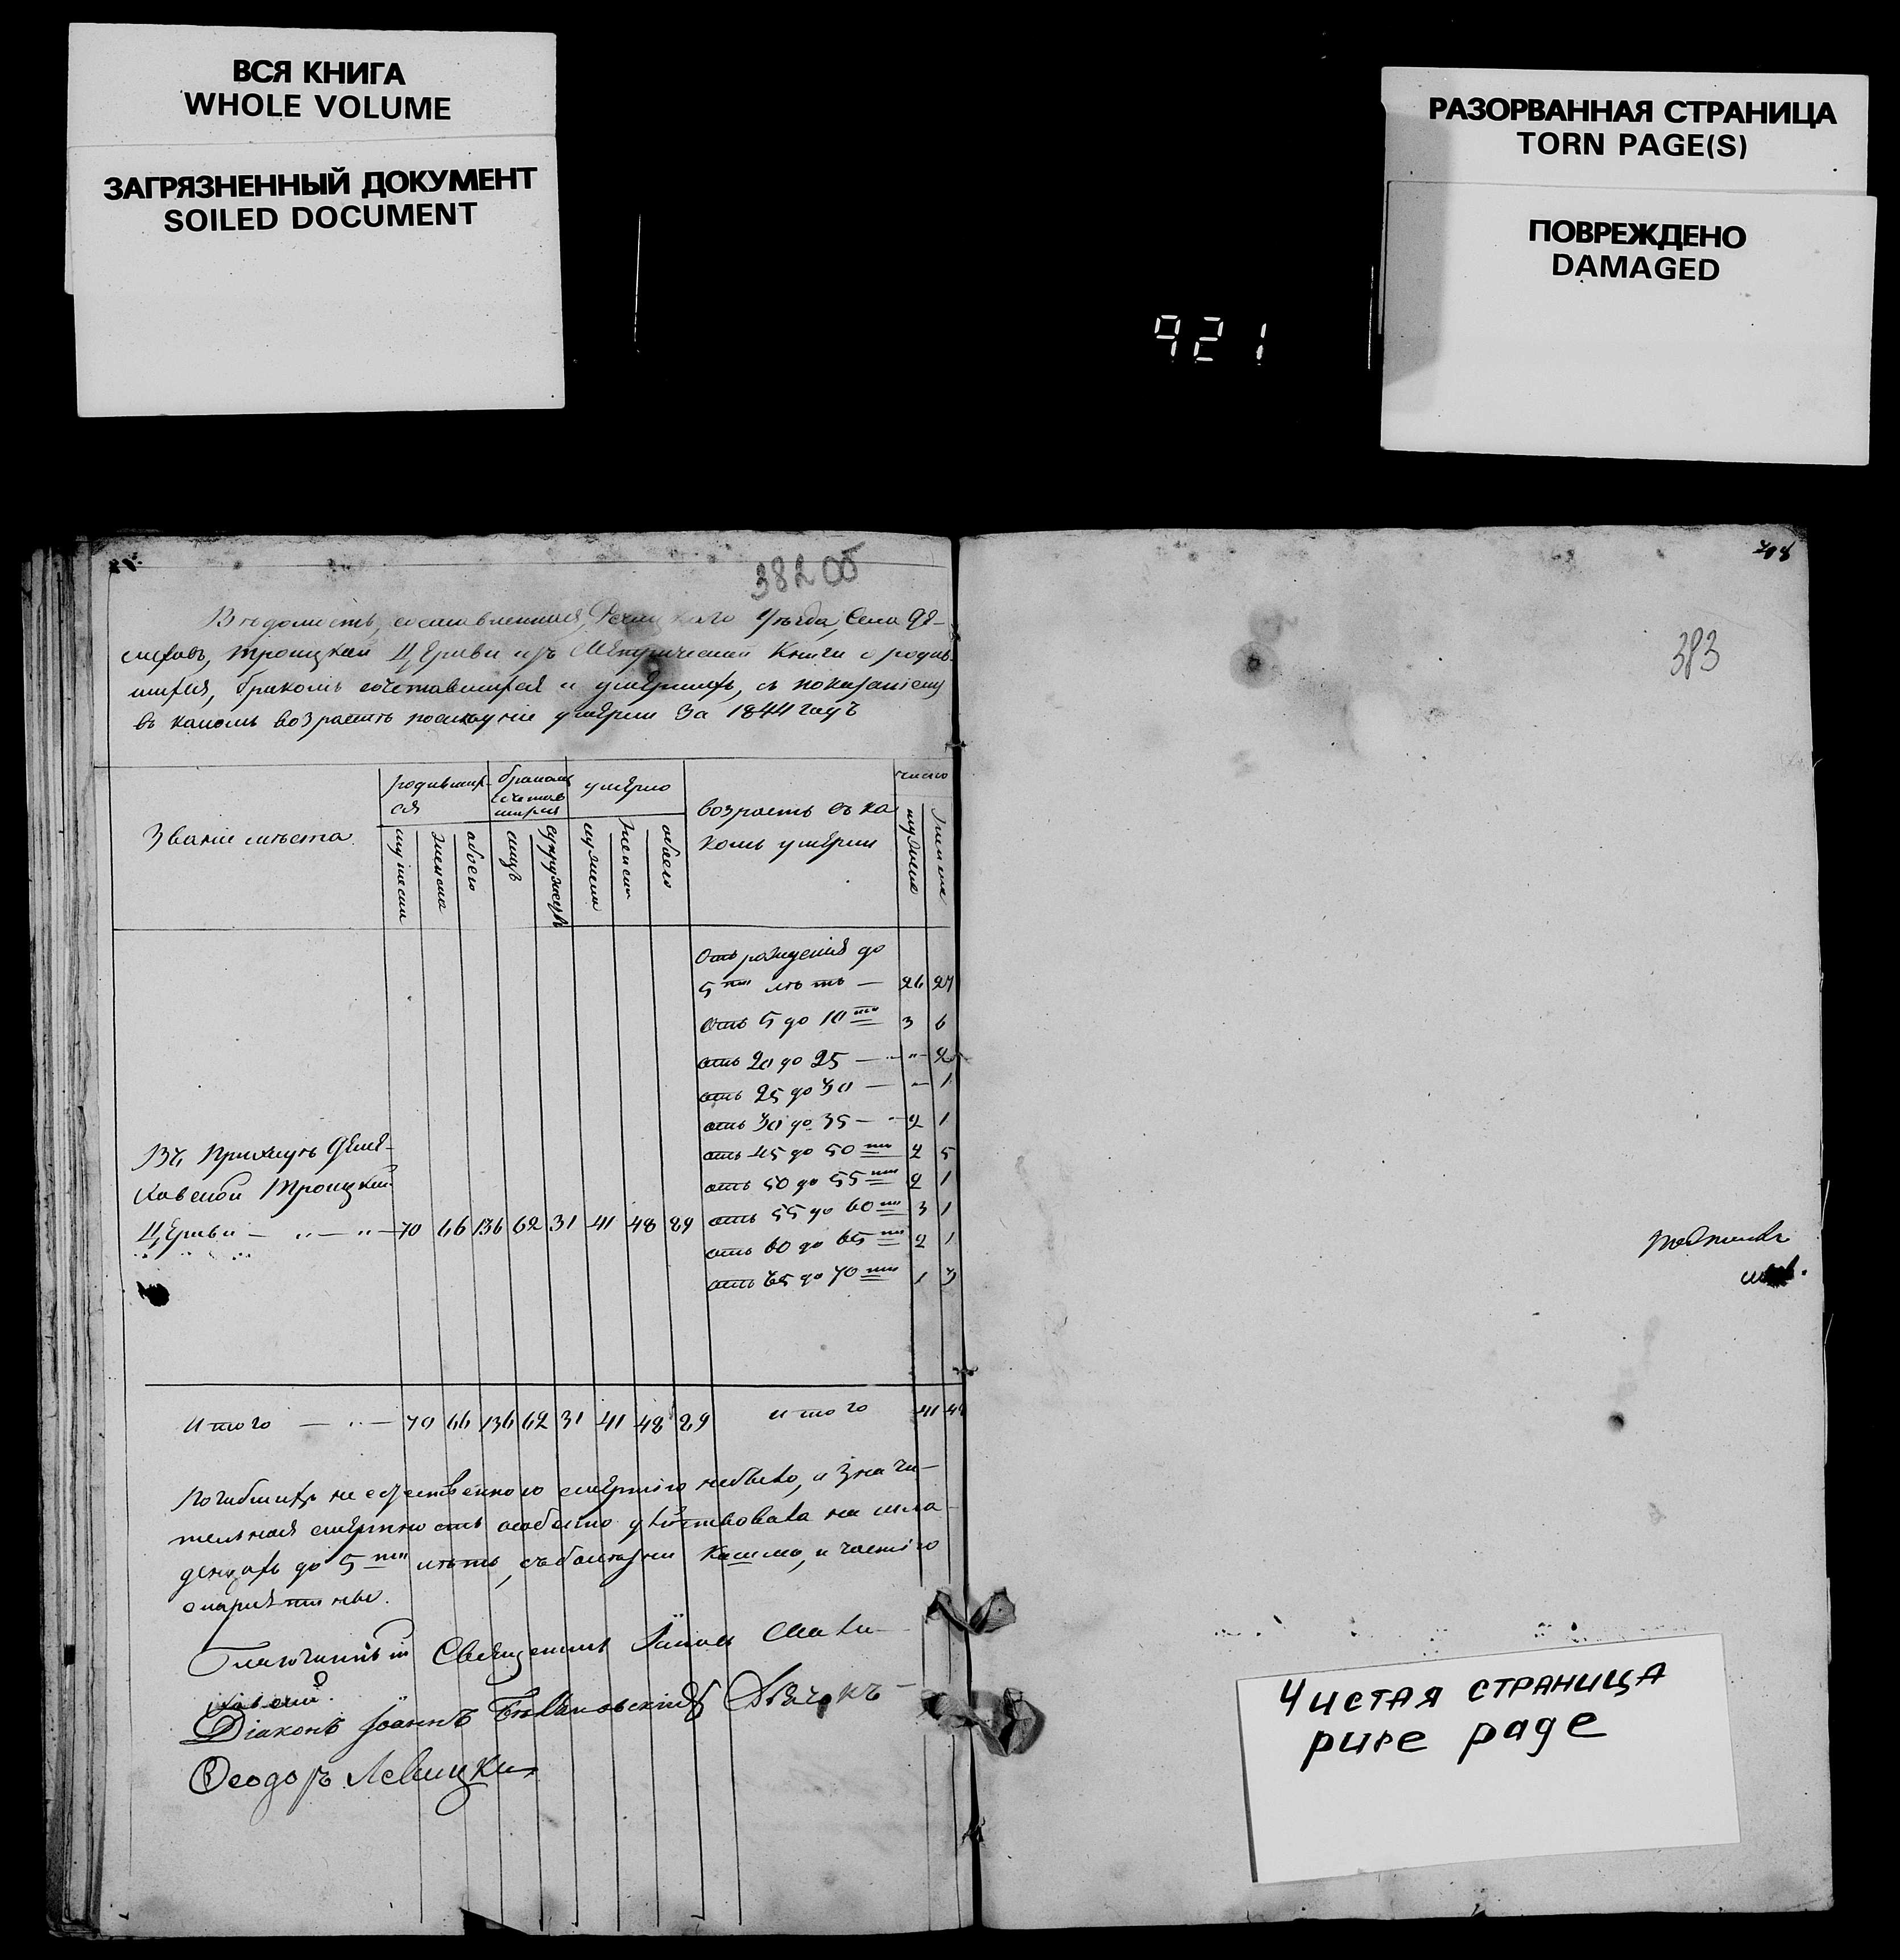 ВСЯ КНИГА
WHOLE VOLUME
ЗАГРЯЗНЕННЫЙ ДОКУМЕНТ
SOILED DOCUMENT
РАЗОРВАННАЯ СТРАНИЦА
TORN PAGE(S)
ПОВРЕЖДЕНО
DAMAGED
921
382 об
Вѣдомость, составленная, Рѣчицкаго Уѣзда, Села
Троицкой Церкви изъ Метрической Книги о родив-
шихся, бракомъ сочетавшихся и умершихъ, съ показаніемъ
въ какомъ возрастѣ послѣдніе умерли За 1844 годъ
Званіе мѣста
родивших-
ся
мужеска
женска
обоего
бракомъ
сочетав
шихся
лицъ
супружествъ
умерло
мужеска
женска
обоего
возрастъ въ ка
комъ умерли
число
мужеска
женска
Отъ рожденія до
5ти лѣтъ — 26 27
отъ 5 до 10ти 3 6
отъ 20 до 25 — „ 2
отъ 25 до 30 — „ 1
отъ 30 до 35 — 2 1
отъ 45 до 50ти 2 5
отъ 50 до 55ти 2 1
отъ 55 до 60ти 3 1
отъ 60 до 65ти 2 1
отъ 65 до 70ти 1 3
Въ Приходѣ
Троицкой
Церкви — „ — „ — 70 66 136 62 31 41 48 89
Итого — „ — 70 66 136 62 31 41 48 89 итого 41 48
Погибшихъ не естественною смертію небыло, и значи-
тельная смертность особенно дѣйствовала на мла-
денцахъ до 5ти лѣтъ, съ болѣзни кашлю, и частію
Священникъ
Діаконъ Іоаннъ Дьячокъ
Ѳеодоръ Левицкій
383
Чистая страница
pure page